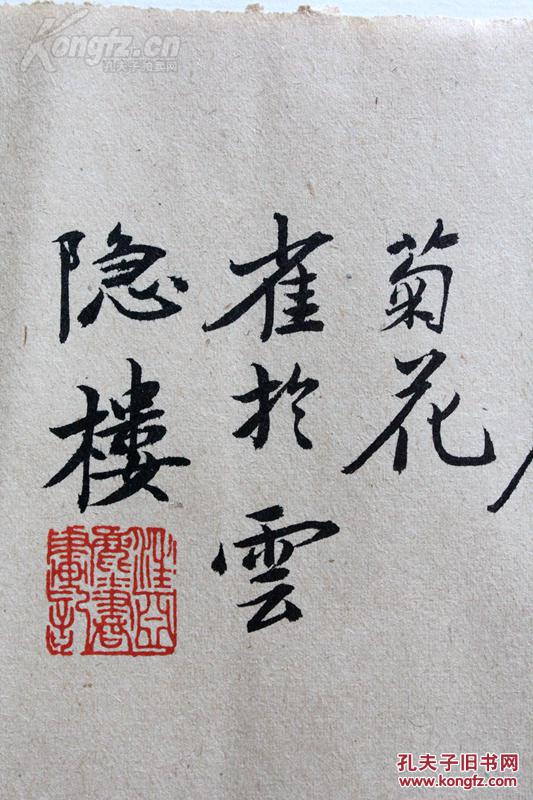 Kongfz.cn
孔夫子泊卖网
菊花
隺於雲
隐樓
孔夫子旧书网
www.kongfz.com